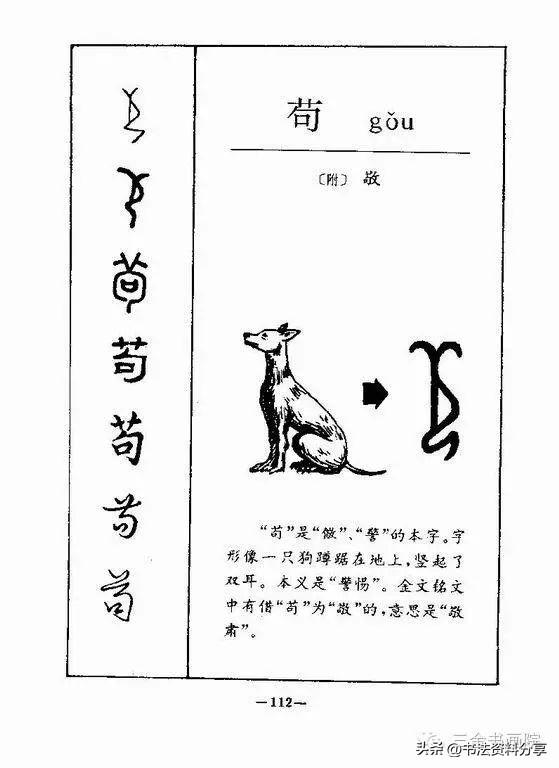 苟 gǒu
〔附〕 敬
“苟”是“儆”、“警”的本字。字
形像一只狗蹲踞在地上，竖起了
双耳。本义是“警惕”。金文铭文
中有借“苟”为“敬”的，意思是“敬
肃”。
苟
苟
苟
苟
苟
—112—
三余书画院
头条 @书法资料分享